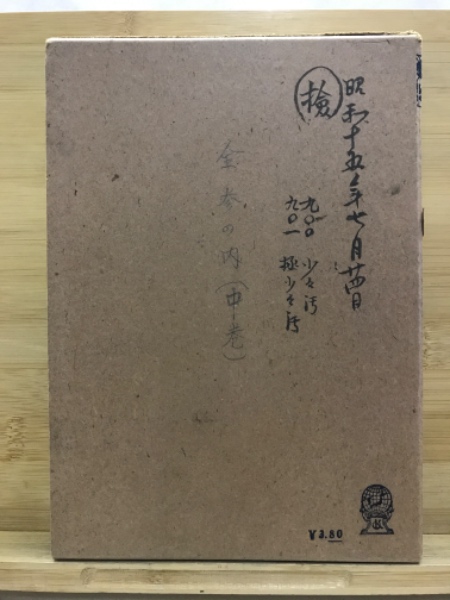 昭和十五年七月廿四日
検
九〇〇 少々汚
九〇一 極少々汚
全参の内(中巻)
¥3.80